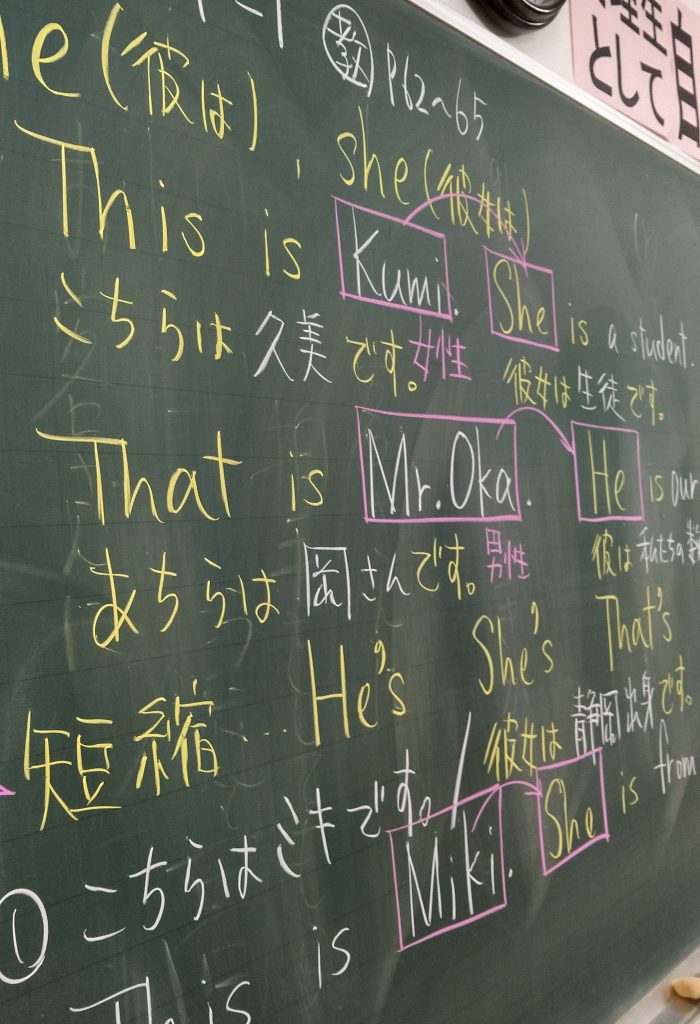 教 P62~65
として
he (彼は), she (彼女は)
This is Kumi. She is a student.
こちらは 久美 です。女性 彼女は 生徒 です。
That is Mr. Oka. He is our
あちらは 岡さん です。男性 彼は 私たちの
短縮… He's She's That's
こちらは ミキです。/ 彼女は 静岡 出身 です。
① This is Miki. She is from